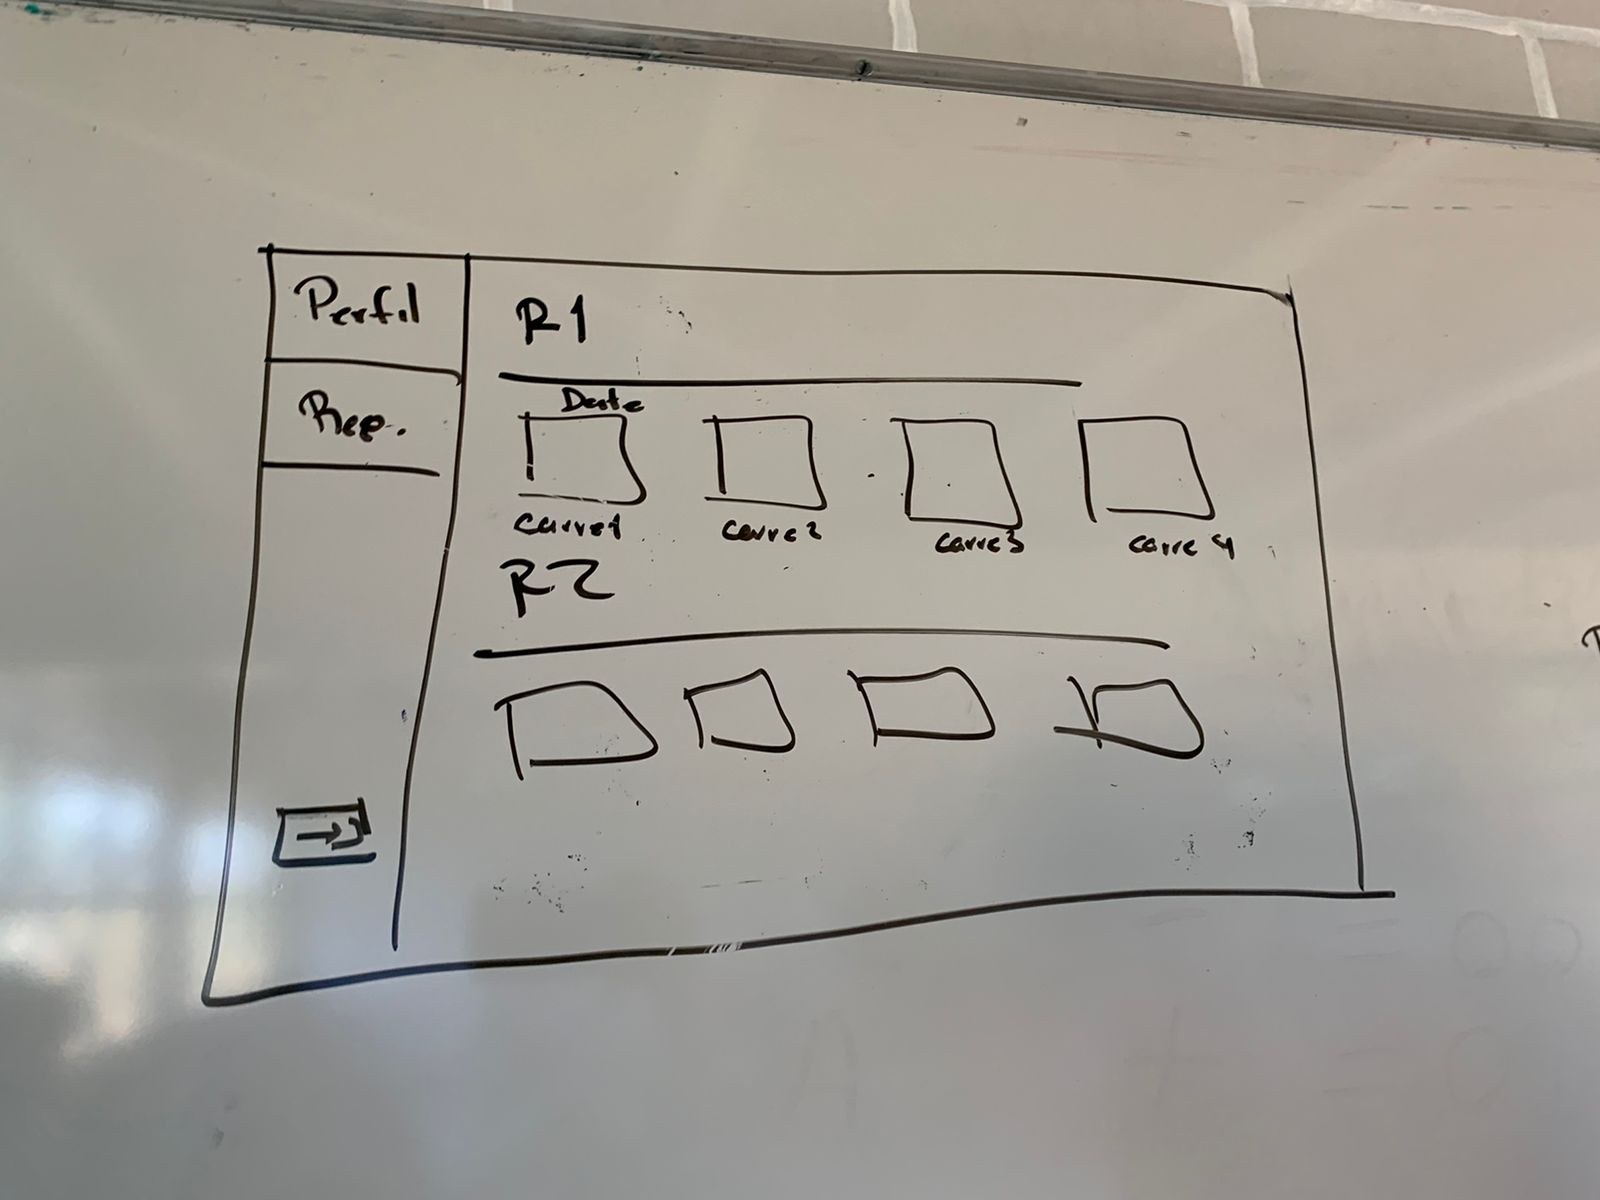 Perfil
Rep.
R1
Date
carre1
carre2
carre3
carre 4
R2